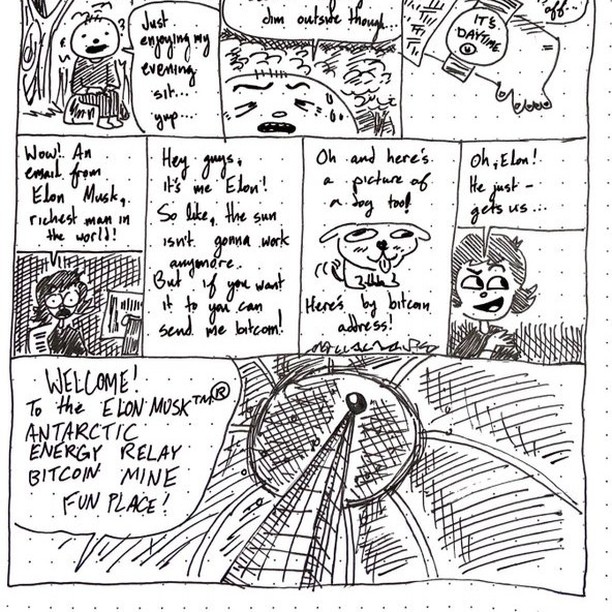 Just
enjoying my
evening
sit...
yup...
dim outside though...
IT'S
DAYTIME
off...
Wow! An
email from
Elon Musk,
richest man in
the world!
Hey guys,
it's me Elon!
So like, the sun
isn't gonna work
anymore.
But if you want
it to you can
send me bitcoin!
Oh and here's
a picture of
a dog too!
Here's by bitcoin
address!
Oh, Elon!
He just -
gets us...
WELCOME!
To the ELON MUSK™®
ANTARCTIC
ENERGY RELAY
BITCOIN MINE
FUN PLACE!